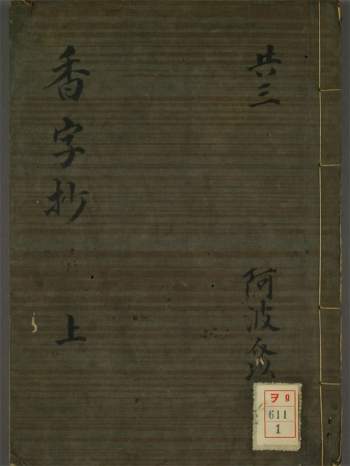 共三
阿波
香字抄
上
ヲ 9
611
1